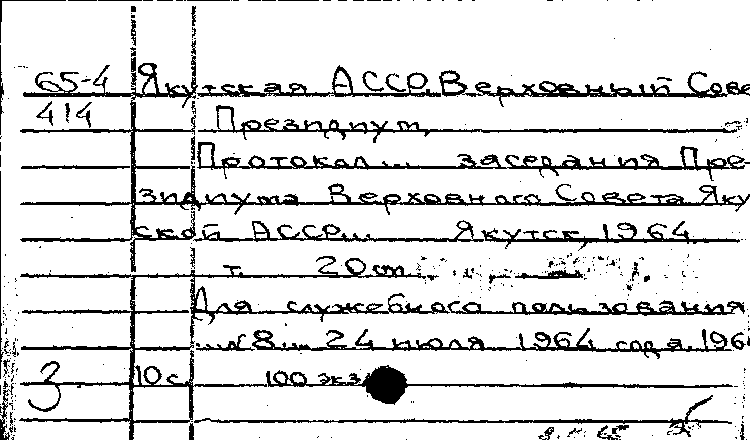 65-4 Якутская АССР. Верховный Сове
414 Президиум.
Протокол... заседания Пре-
зидиума Верховного Совета Яку
ской АССР... Якутск, 1964
т. 20 см
Для служебного пользования
...№8... 24 июля 1964 года. 196
3 10 с. 100 экз.